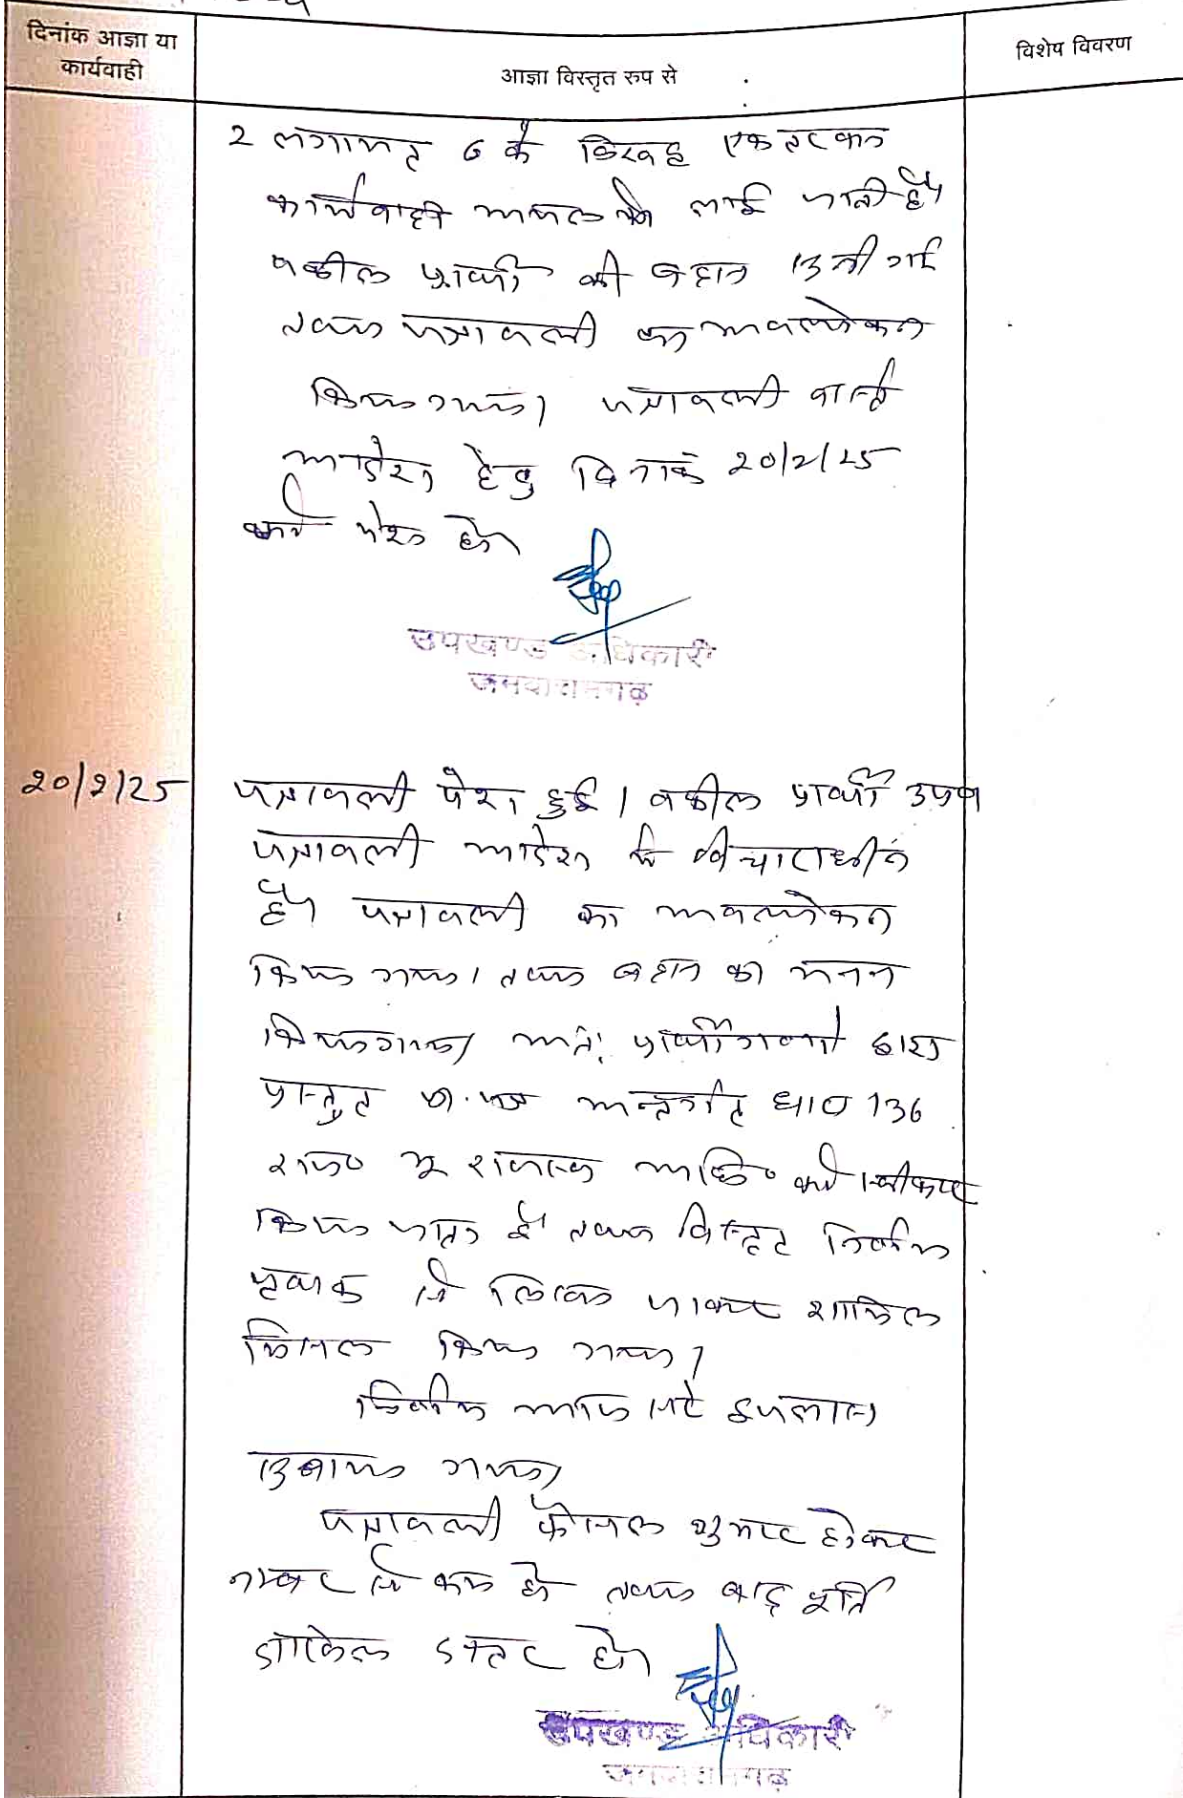 दिनांक आज्ञा या
कार्यवाही
आज्ञा विस्तृत रुप से
विशेष विवरण
2 लगायत 6 के विरुद्ध एकतरफा
कार्यवाही अमल में लाई जाती है।
वकील प्रार्थी की बहस सुनी गई
तथा पत्रावली का अवलोकन
किया गया। पत्रावली वास्ते
आदेश हेतु दिनांक 20/2/25
को पेश हो।
उपखण्ड अधिकारी
जमवारामगढ़
20/2/25
पत्रावली पेश हुई। वकील प्रार्थी उप०
पत्रावली आदेश में विचाराधीन
है। पत्रावली का अवलोकन
किया गया। तथा बहस का मनन
किया गया। अतः प्रार्थीगणों द्वारा
प्रस्तुत प्रा.पत्र अन्तर्गत धारा 136
राज० भू राजस्व अधि० को स्वीकार
किया जाता है। तथा विस्तृत निर्णय
पृथक से लिखा जाकर शामिल
मिसल किया गया।
निर्णय आज सरे इजलास
सुनाया गया।
पत्रावली फैसल शुमार होकर
नम्बर से कम हो तथा बाद पूर्ति
दाखिल दफ्तर हो।
उपखण्ड अधिकारी
जमवारामगढ़